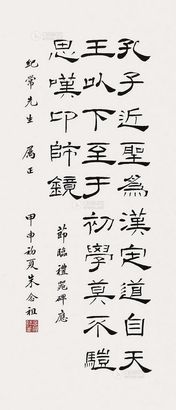 孔子近聖為漢定道自天
王以下至于初學莫不
思嘆卬師鏡
節臨禮器碑應
紀常先生 屬正
甲申初夏朱念祖